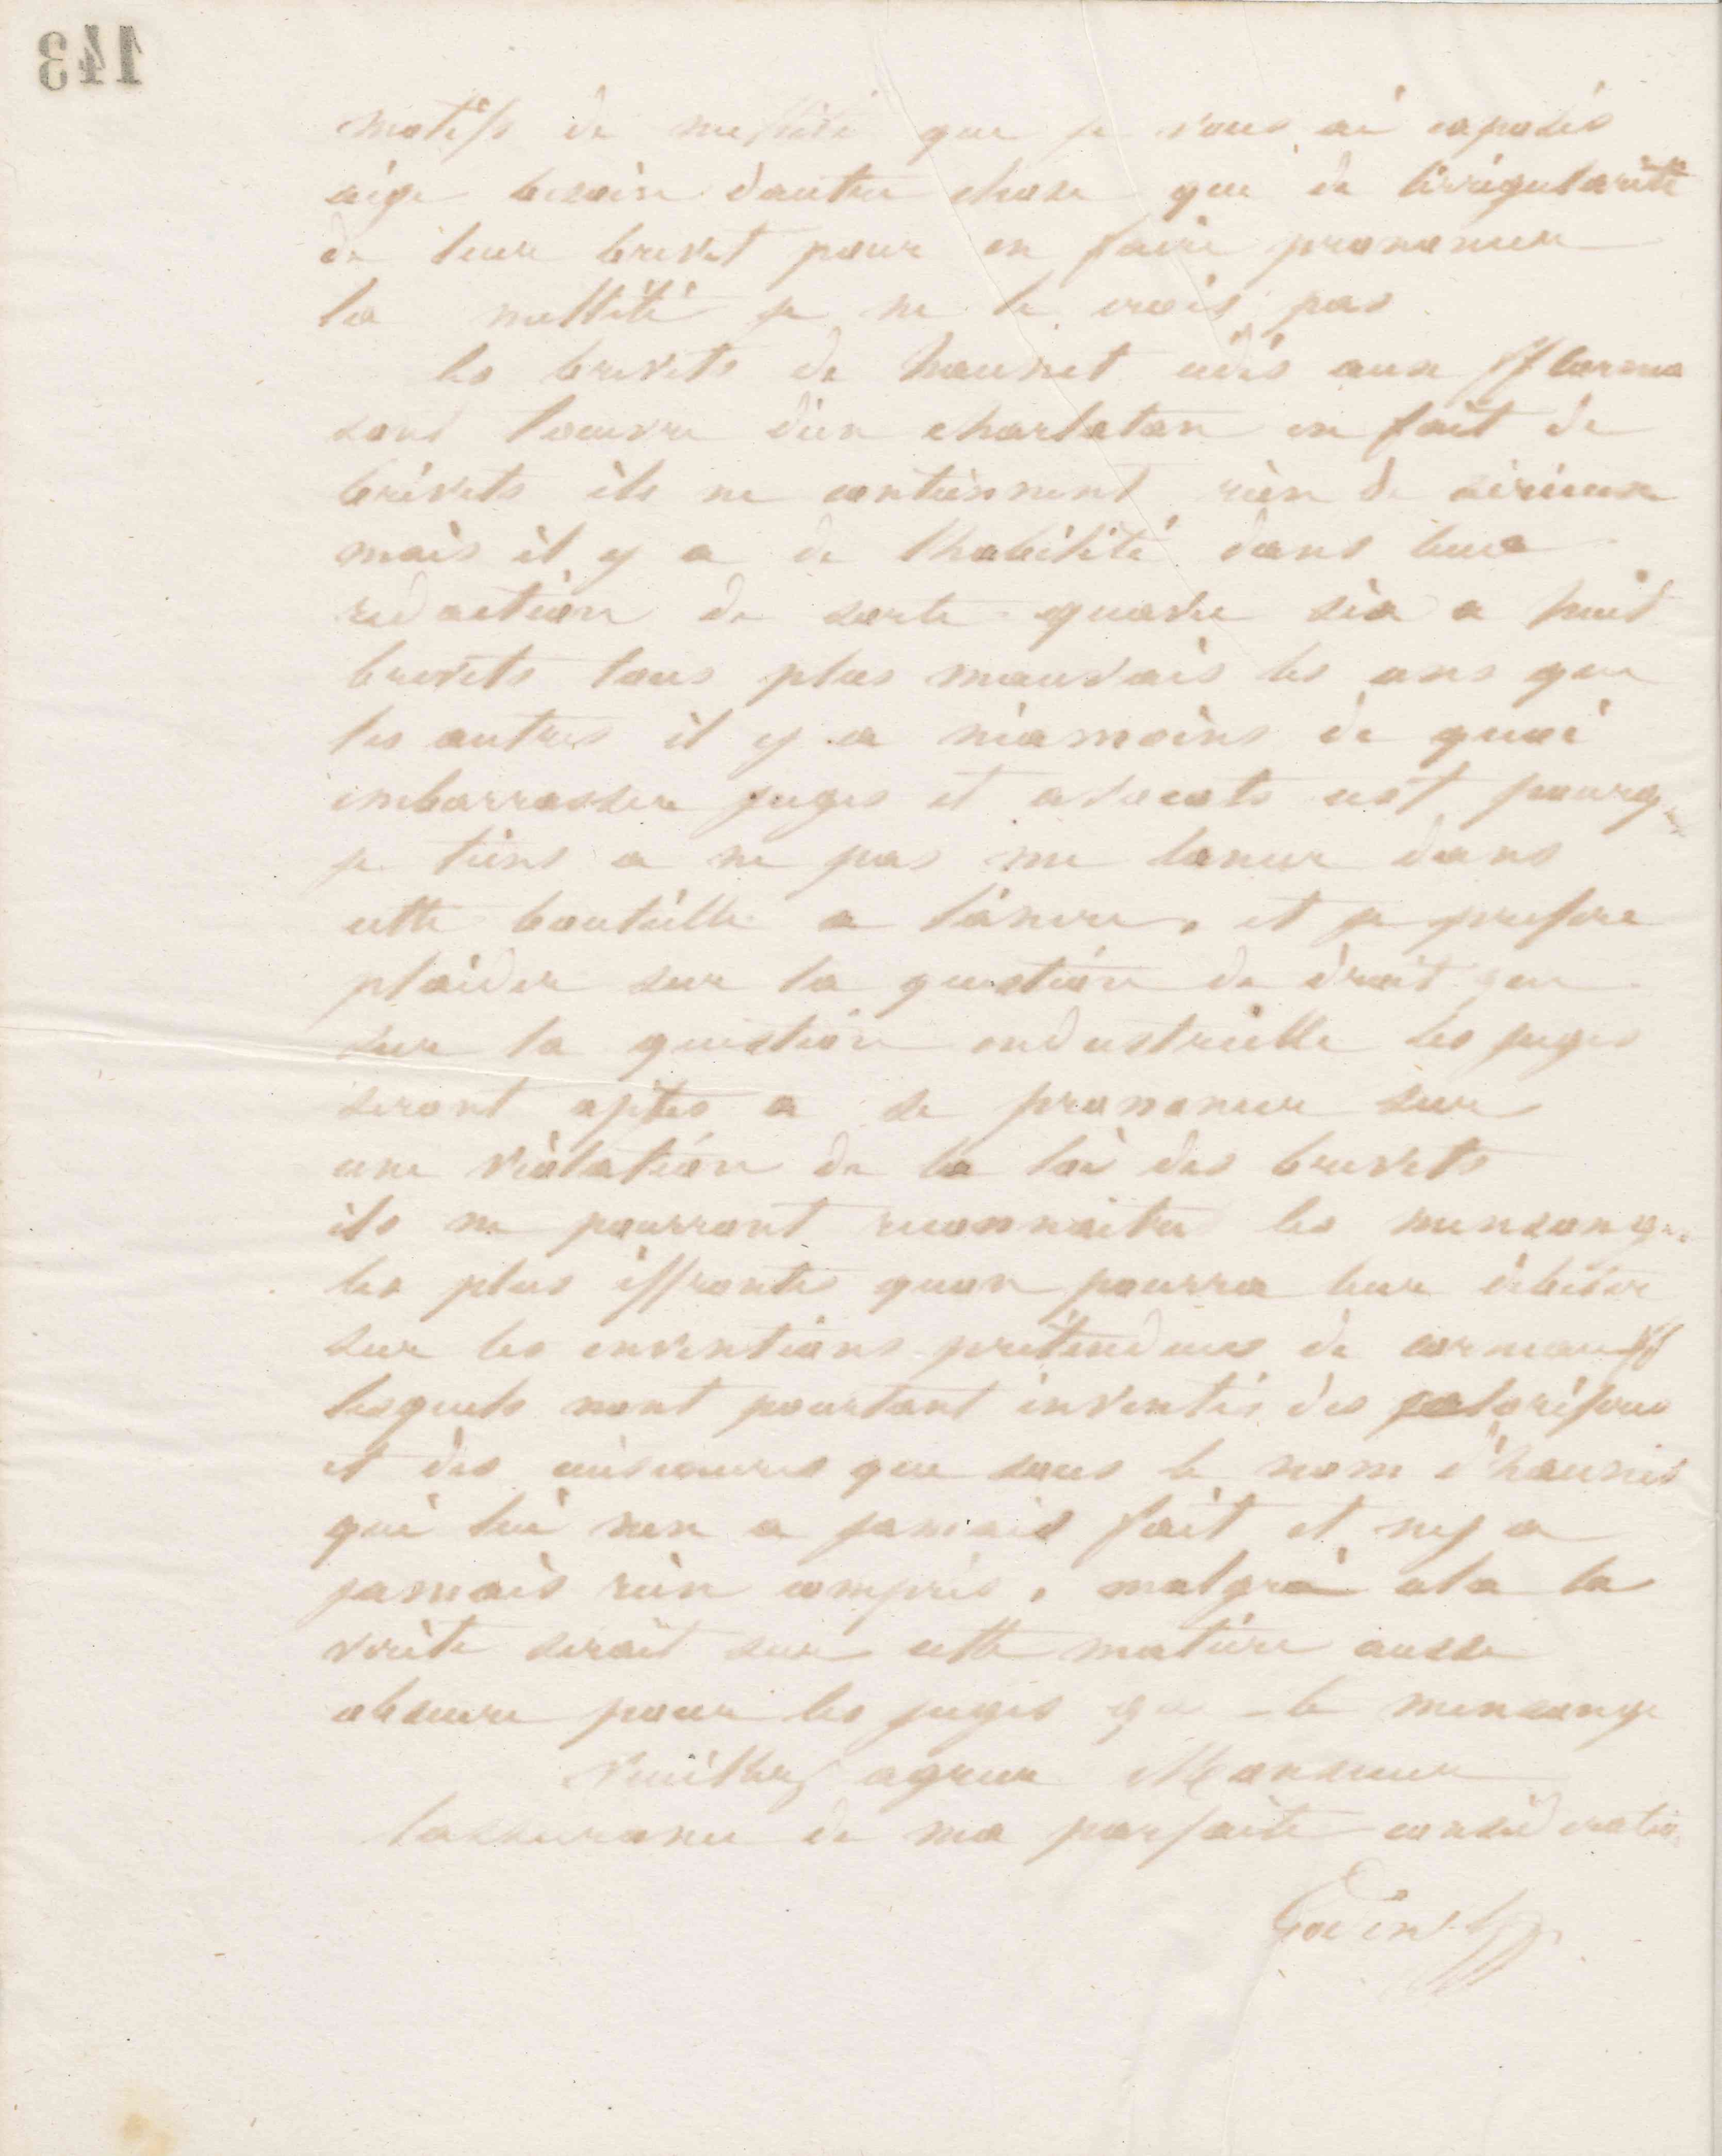 143
motifs de nullité que je vous ai exposés
aige besoin dautre chose que de lirrégularité
de leur brevet pour en faire prononcer
la nullité je ne le crois pas
les brevets de haunet cédés aux
sont loeuvre d'un charlatan en fait de
brévets ils ne contiennent rien de sérieux
mais il y a de lhabilité dans leur
redaction de sorte quavec six a huit
brevets tous plus mauvais les uns que
les autres il y a néamoins de quoi
embarrasser juges et avocats cest pourq
je tiens a ne pas me lancer dans
cette bouteille a lancre, et je prefere
plaider sur la question de droit que
sur la question industrielle les juges
seront aptes a se prononcer sur
une violation de la loi des brevets
ils ne pourront reconnaitre les mensonges
les plus effrontés quon pourra leur débiter
sur les inventions prétendues de
lesquels nont pourtant inventés des caloriferes
et des que sous le nom d'haunet
qui lui nen a jamais fait et ny a
jamais rien compris, malgré cela la
vérité serait sur cette matière aussi
obscure pour les juges que le mensonge
Veuillez agréer Monsieur
lassurance de ma parfaite consideration
Godin